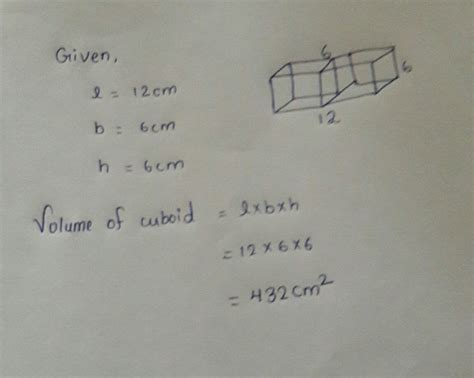 Given,
l = 12cm
b = 6cm
h = 6cm
6
6
12
Volume of cuboid = l×b×h
= 12×6×6
= 432cm²